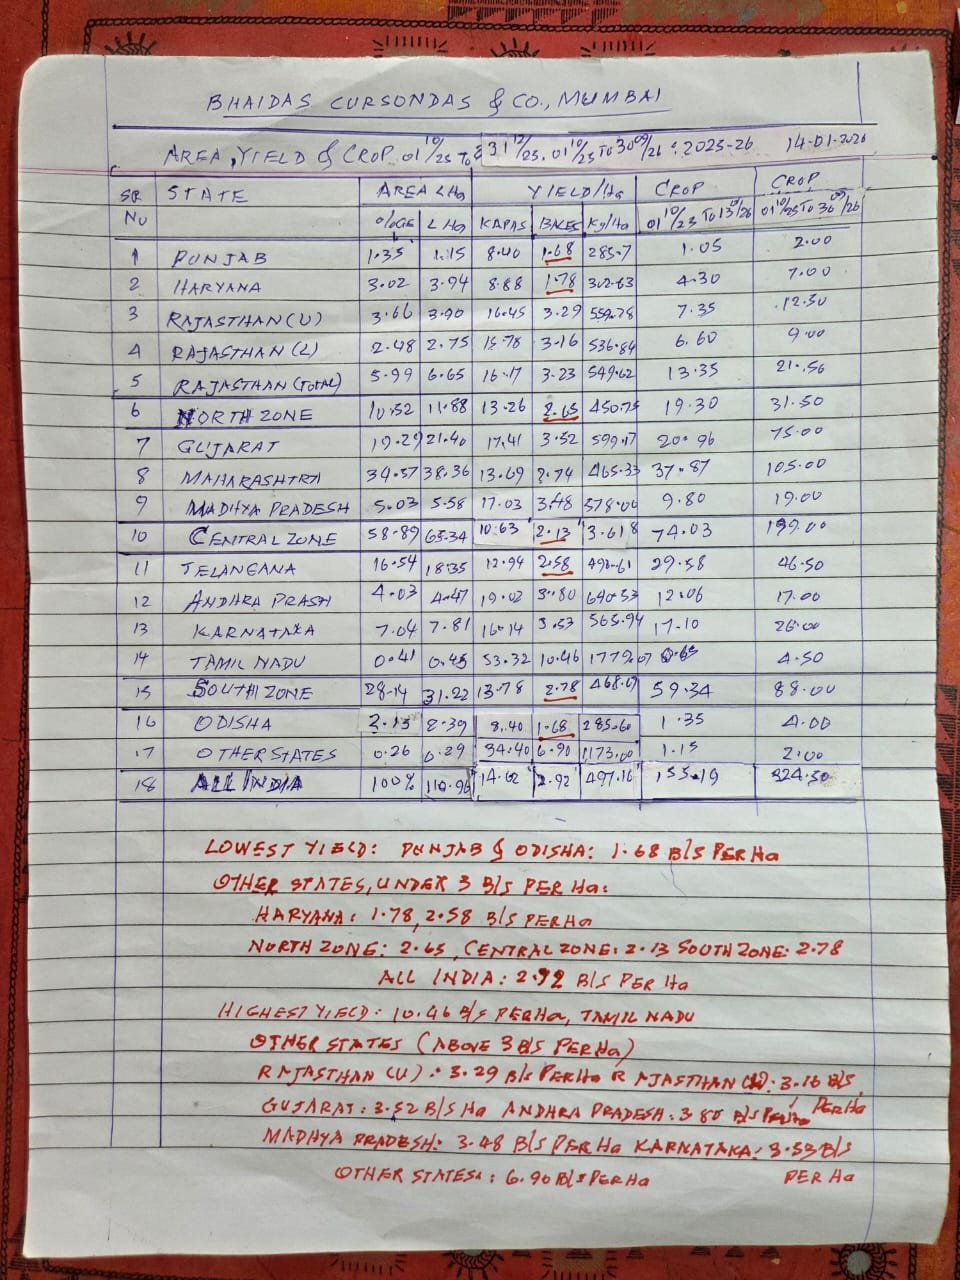 BHAIDAS CURSONDAS & CO., MUMBAI
AREA, YIELD & CROP 01 10/25 TO 31 12/25, 01 10/25 TO 30 09/26 : 2025-26 14-01-2026
SR STATE AREA LHa YIELD/Ha CROP CROP
NO %GE L Ha KAPAS BALES Kg/Ha 01 10/25 TO 13/26 01 10/25 TO 30 09/26
1 PUNJAB 1.35 1.15 8.40 1.68 285.7 1.05 2.00
2 HARYANA 3.02 3.94 8.88 1.78 302.63 4.30 7.00
3 RAJASTHAN (U) 3.66 3.90 16.45 3.29 559.78 7.35 12.50
4 RAJASTHAN (L) 2.48 2.75 15.78 3.16 536.84 6.60 9.00
5 RAJASTHAN (TOTAL) 5.99 6.65 16.17 3.23 549.62 13.35 21.56
6 NORTH ZONE 10.52 11.88 13.26 2.65 450.75 19.30 31.50
7 GUJARAT 19.29 21.40 17.41 3.52 599.17 20.96 75.00
8 MAHARASHTRA 34.57 38.36 13.69 2.74 465.33 37.87 105.00
9 MADHYA PRADESH 5.03 5.58 17.03 3.48 578.00 9.80 19.00
10 CENTRAL ZONE 58.89 65.34 10.63 2.13 3.618 74.03 199.00
11 TELANGANA 16.54 18.35 12.94 2.58 29.58 46.50
12 ANDHRA PRASH 4.03 4.47 19.02 3.80 690.53 12.06 17.00
13 KARNATAKA 7.04 7.81 16.14 3.53 565.94 17.10 26.00
14 TAMIL NADU 0.41 0.45 53.32 10.46 1779.07 0.65 4.50
15 SOUTH ZONE 28.14 31.22 13.78 2.78 468.07 59.34 88.00
16 ODISHA 2.15 2.39 8.40 1.68 285.60 1.35 4.00
17 OTHER STATES 0.26 0.29 34.40 6.90 1173.00 1.15 2.00
18 ALL INDIA 100% 110.96 14.62 2.92 497.16 153.19 324.50
LOWEST YIELD: PUNJAB & ODISHA: 1.68 B/S PER Ha
OTHER STATES, UNDER 3 B/S PER Ha:
HARYANA: 1.78, 2.58 B/S PER Ha
NORTH ZONE: 2.65, CENTRAL ZONE: 2.13 SOUTH ZONE: 2.78
ALL INDIA: 2.92 B/S PER Ha
HIGHEST YIELD: 10.46 B/S PER Ha, TAMIL NADU
OTHER STATES (ABOVE 3 B/S PER Ha)
RAJASTHAN (U): 3.29 B/S PER Ha RAJASTHAN (L): 3.16 B/S,
PER Ha
GUJARAT: 3.52 B/S Ha ANDHRA PRADESH: 3.80 B/S PER Ha
MADHYA PRADESH: 3.48 B/S PER Ha KARNATAKA: 3.53 B/S
OTHER STATES: 6.90 B/S PER Ha PER Ha